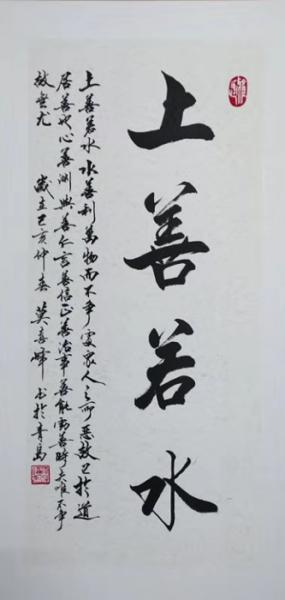 上善若水
上善若水水善利萬物而不争處衆人之所恶故几於道
居善地心善渊與善仁言善信正善治事善能動善時夫唯不争
故無尤 歲在己亥仲春 莫喜峰 书於青島